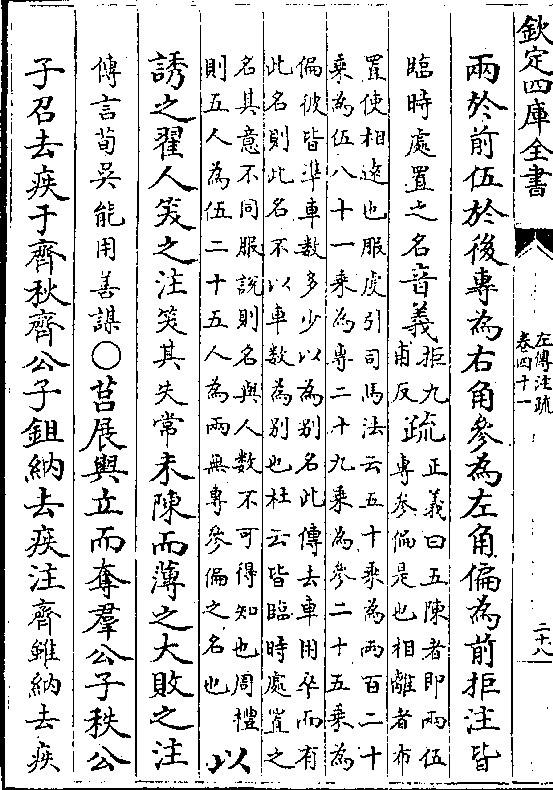 欽定四庫全書
左傳注疏
卷四十一
二十八
兩於前伍於後專為右角參為左角偏為前拒注皆
臨時處置之名音義拒九甫反疏正義曰五陳者即兩伍
專參偏是也相離者布
置使相遠也服虔引司馬法云五十乘為兩百二十
乘為伍八十一乘為專二十九乘為參二十五乘為
偏彼皆準車數多少以為別名此傳去車用卒而有
此名則此名不以車數為別也杜云皆臨時處置之
名其意不同服說則名與人數不可得知也周禮
則五人為伍二十五人為兩無專參偏之名也
以
誘之翟人笑之注笑其失常未陳而薄之大敗之注
傳言荀吳能用善謀○莒展輿立而奪羣公子秩公
子召去疾于齊秋齊公子鉏納去疾注齊雖納去疾